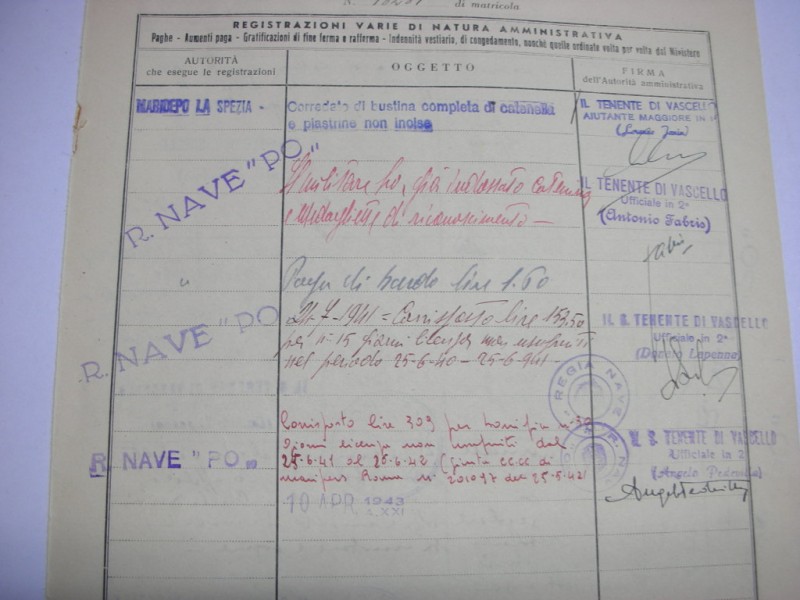 di matricola
REGISTRAZIONI VARIE DI NATURA AMMINISTRATIVA
Paghe - Aumenti paga - Gratificazioni di fine ferma e rafferma - Indennità vestiario, di congedamento, nonchè quelle ordinate volta per volta dal Ministero
AUTORITÀ
che esegue le registrazioni
OGGETTO
FIRMA
dell'Autorità amministrativa
MARIDEPO LA SPEZIA -
Corredato di bustina completa di catenella
e piastrine non incise
IL TENENTE DI VASCELLO
AIUTANTE MAGGIORE IN
R. NAVE "PO"
Il militare ha già indossato catenina
e medagliette di riconoscimento -
IL TENENTE DI VASCELLO
Ufficiale in 2ª
(Antonio Fabris)
Fabris
"
Paga di bordo lire 1.60
R. NAVE "PO
21-7-1941 = Corrisposto lire 153,50
per n. 15 giorni licenza non usufruiti
nel periodo 25-6-40 - 25-6-941 -
IL S. TENENTE DI VASCELLO
Ufficiale in 2ª
REGIA NAVE
R. NAVE "PO"
Corrisposto lire 309 per n. 30
giorni licenza non usufruiti dal
25-6-41 al 25-6-42 (
Roma n° 201097 del 25-5-42)
IL S. TENENTE DI VASCELLO
Ufficiale in 2
10 APR. 1943
A. XXI